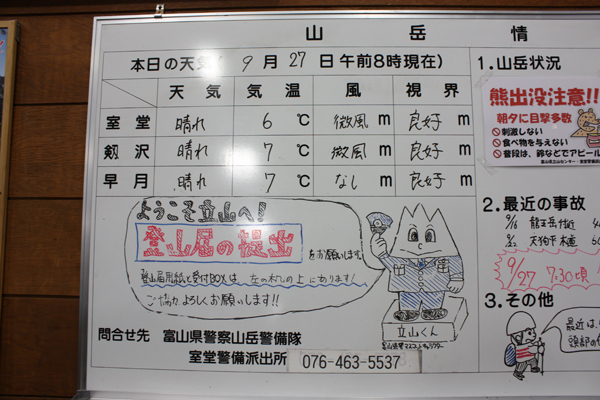 山 岳 情
本日の天気( 9 月 27 日 午前8時現在)
天 気 気 温 風 視 界
室 堂 晴れ 6 ℃ 微風 m 良好 m
剱 沢 晴れ 7 ℃ 微風 m 良好 m
早 月 晴れ 7 ℃ なし m 良好 m
ようこそ立山へ!
登山届の提出
をお願いします。
登山届用紙と受付BOXは、左の机の上にあります!
ご協力よろしくお願いします!!
立山くん
富山県警マスコットキャラクター
問合せ先 富山県警察山岳警備隊
室堂警備派出所 076-463-5537
1.山岳状況
熊出没注意!!
朝夕に目撃多数
刺激しない
食べ物を与えない
普段は、鈴などでアピール
富山県立山センター・室堂警備派
2.最近の事故
9/16 龍王岳付近
天狗平 木道
9/27 7:30頃
3.その他
最近は
頭部の